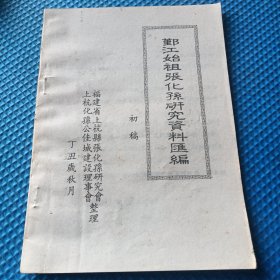 鄞江始祖張化孫研究資料匯編
初稿
福建省上杭縣張化孫研究會
上杭化孫公佳城建設理事會整理
丁丑歲秋月